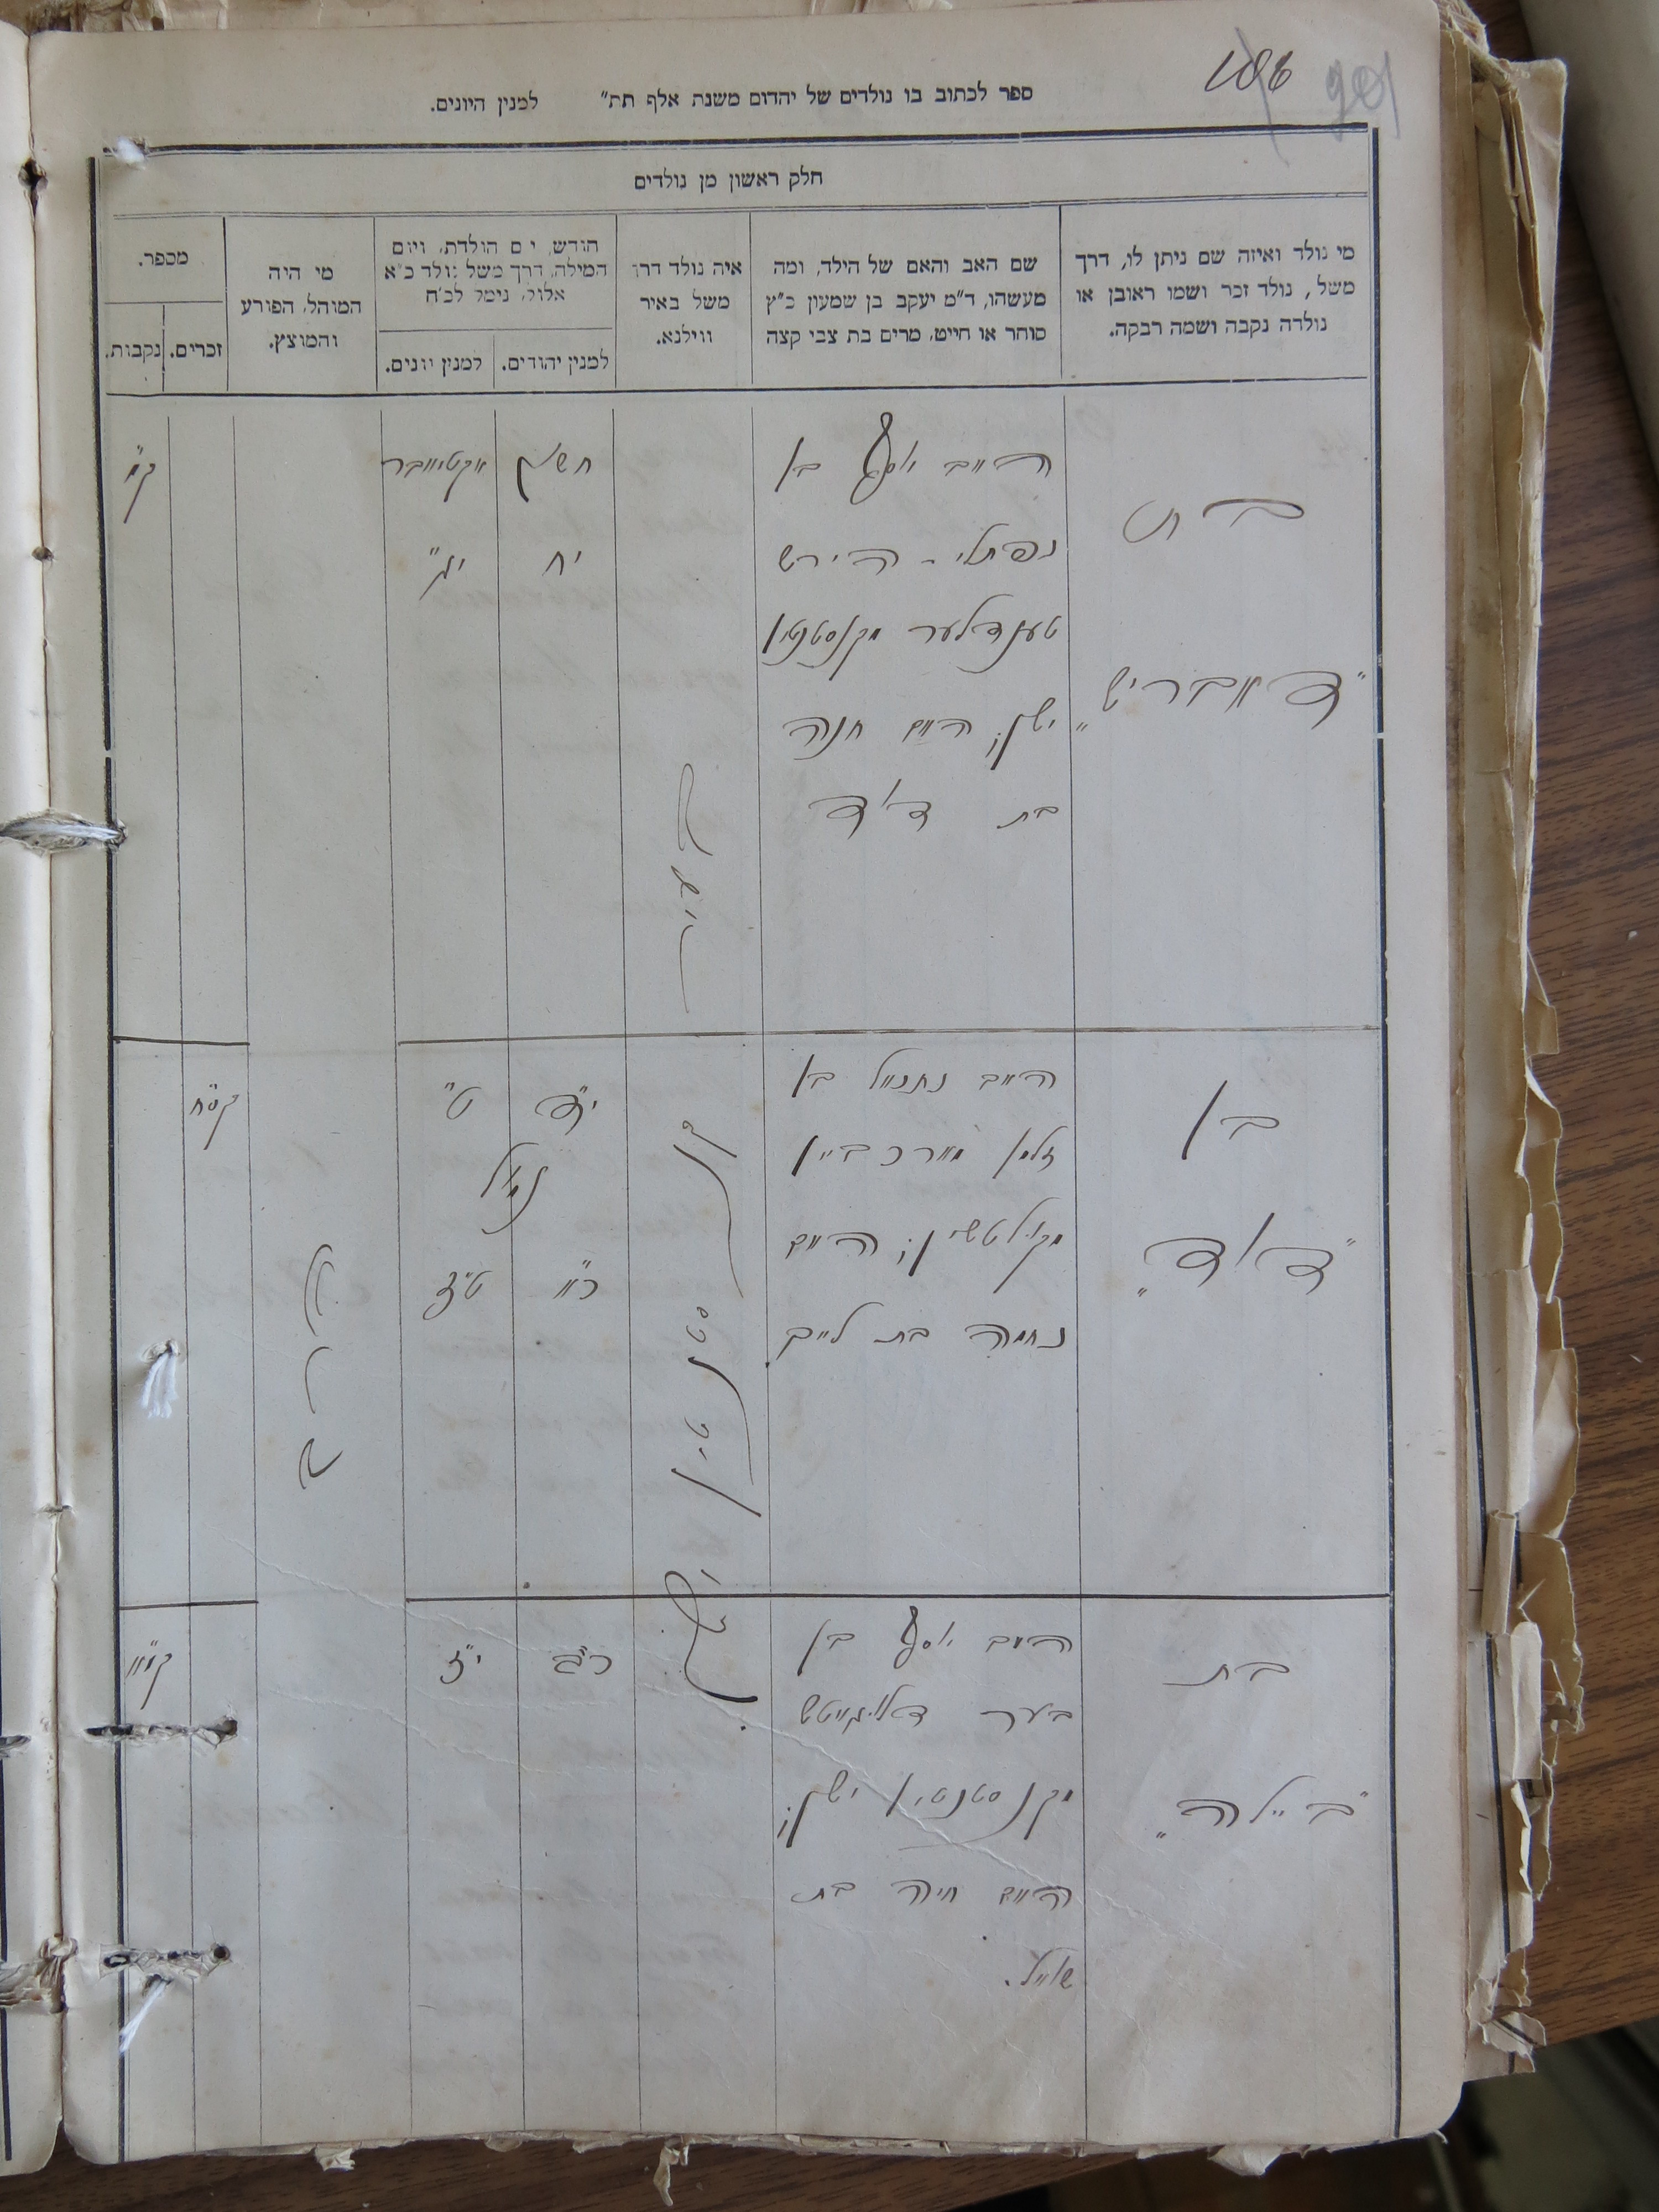 186
ספר לכתוב בו נולדים של יהדום משנת אלף תת״ למנין היונים.
חלק ראשון מן נולדים
מי נולד ואיזה שם ניתן לו, דרך
משל, נולד זכר ושמו ראובן או
נולדה נקבה ושמה רבקה.
שם האב והאם של הילד, ומה
מעשהו, ד״מ יעקב בן שמעון כ״ץ
סוחר או חייט, מרים בת צבי קצה
איה נולד דרך
משל באיר
ווילנא.
חודש, י ם הולדת, ויום
המילה, דרך משל נולד כ״א
אלול, נימל לכ״ח
למנין יהודים.
למנין יונים.
מי היה
המוהל, הפורע
והמוצץ.
מספר.
זכרים.
נקבות.
בת
"דאבריש"
האב יוסף בן
נפתלי - הירש
טענדלער מקנסטנטין
ישן; האם חנה
בת דוד
בעיר
חשון
יח
אקטאבר
בן
"דוד"
האב נתנאל בן
זלמן
האם
נחמה בת לייב
קנסטנטין
ישן
י״ד
ט״
נימול
כ״א
ט״ז
קס״ח
בת
"ביילה"
האב יוסף בן
בער
מקנסטנטין ישן;
האם חיה בת
שאול.
כ״ב
י״ז